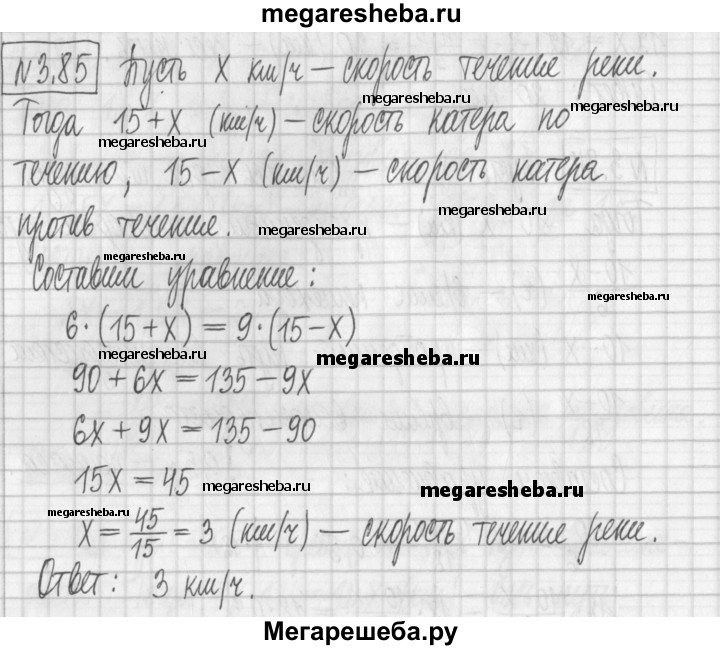 megaresheba.ru
№3.85 Пусть x км/ч – скорость течение реки.
megaresheba.ru
megaresheba.ru
Тогда 15+x (км/ч) – скорость катера по
megaresheba.ru
течению, 15–x (км/ч) – скорость катера
megaresheba.ru
против течение.
megaresheba.ru
megaresheba.ru
Составим уравнение:
megaresheba.ru
6·(15+x) = 9·(15–x)
megaresheba.ru
megaresheba.ru
90+6x = 135–9x
6x+9x = 135–90
15x = 45
megaresheba.ru
megaresheba.ru
x = 45/15 = 3 (км/ч) – скорость течение реки.
megaresheba.ru
Ответ: 3 км/ч.
Мегарешеба.ру